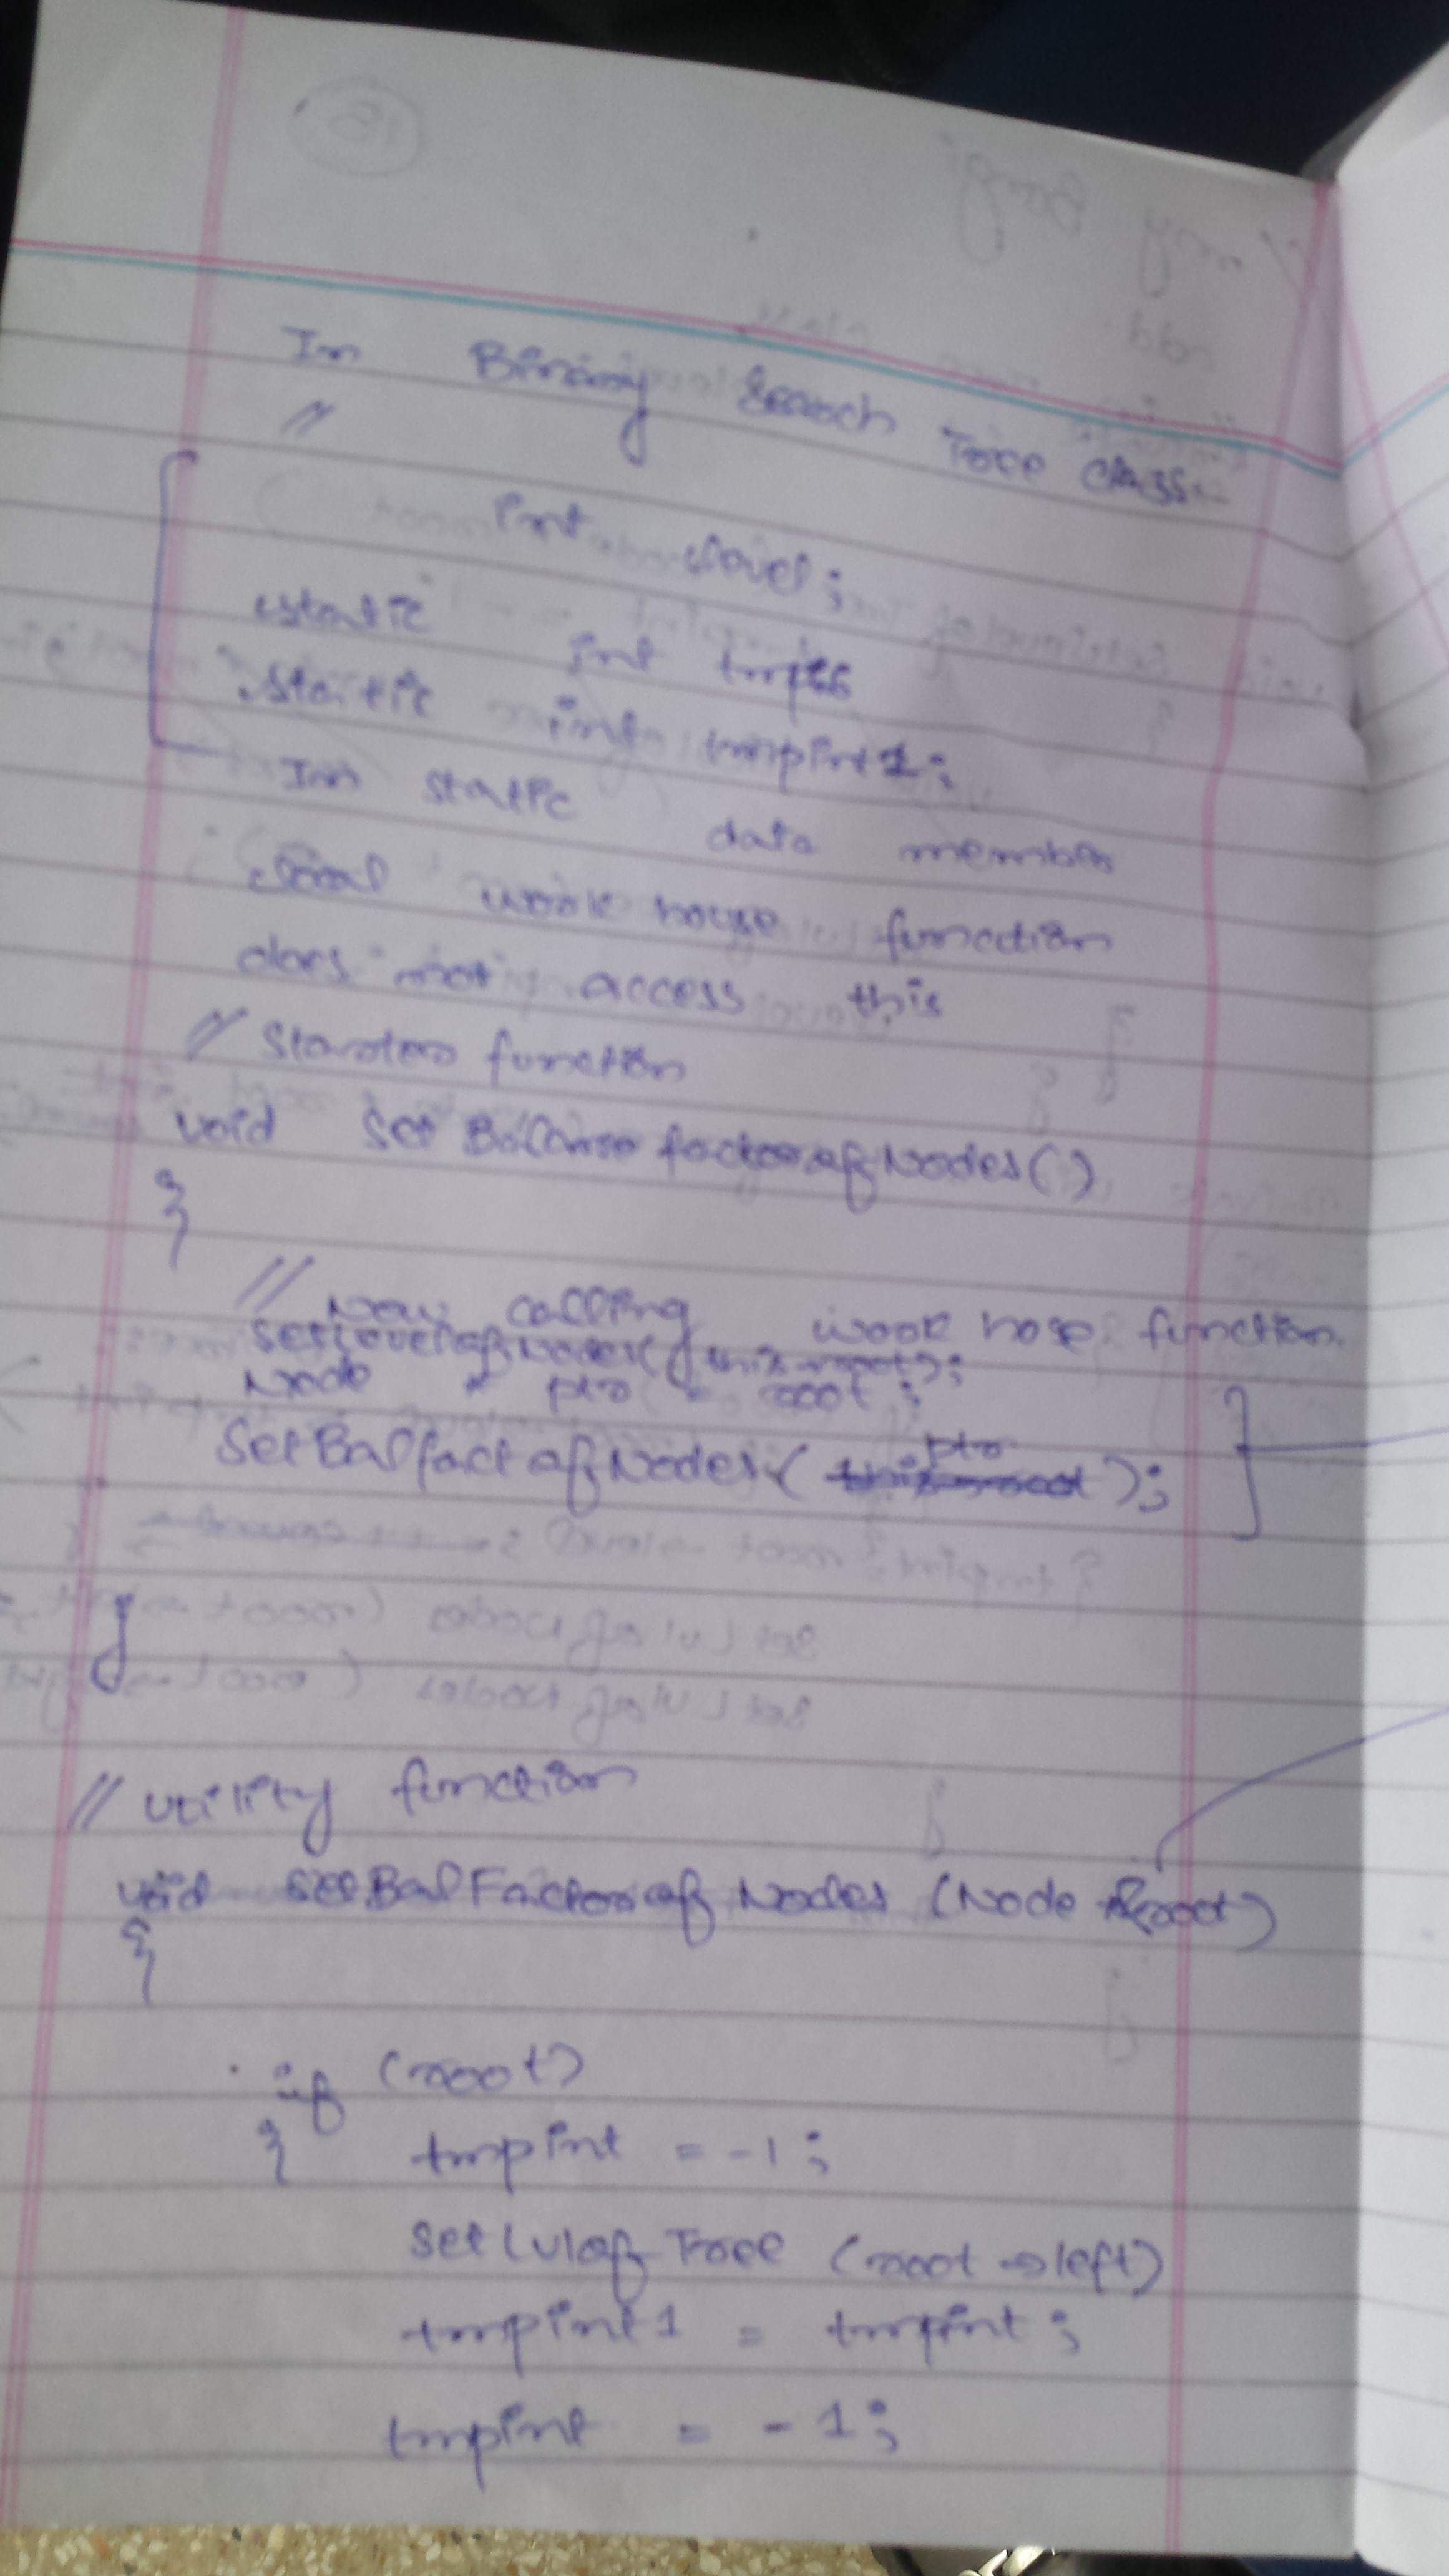 In Binary Search Tree class
//
int level;
static int
static int tmpint1;
In static data member
local work house function
does not access this
// Starter function
void Set Balance factor of Nodes()
{
// Now calling work hose function.
setlevelofNodes(this->root);
Node * ptr = root;
SetBalfact of Nodes( ptr );
}
// utility function
void setBalFactor of Nodes (Node *&root)
{
if (root)
{ tmpint = -1;
set lvl of Tree (root->left)
tmpint1 = tmpint;
tmpint = -1;